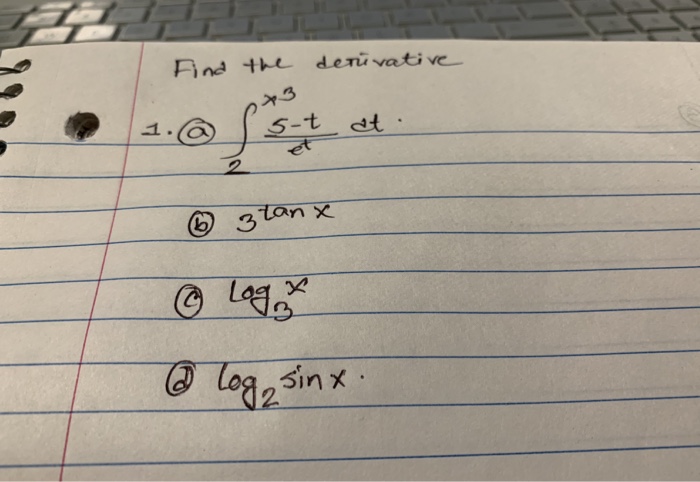 Find the derivative
1. ⓐ ∫₂^{x³} (5-t)/e^t dt.
ⓑ 3^{tan x}
ⓒ log₃ x
ⓓ log₂ sin x.